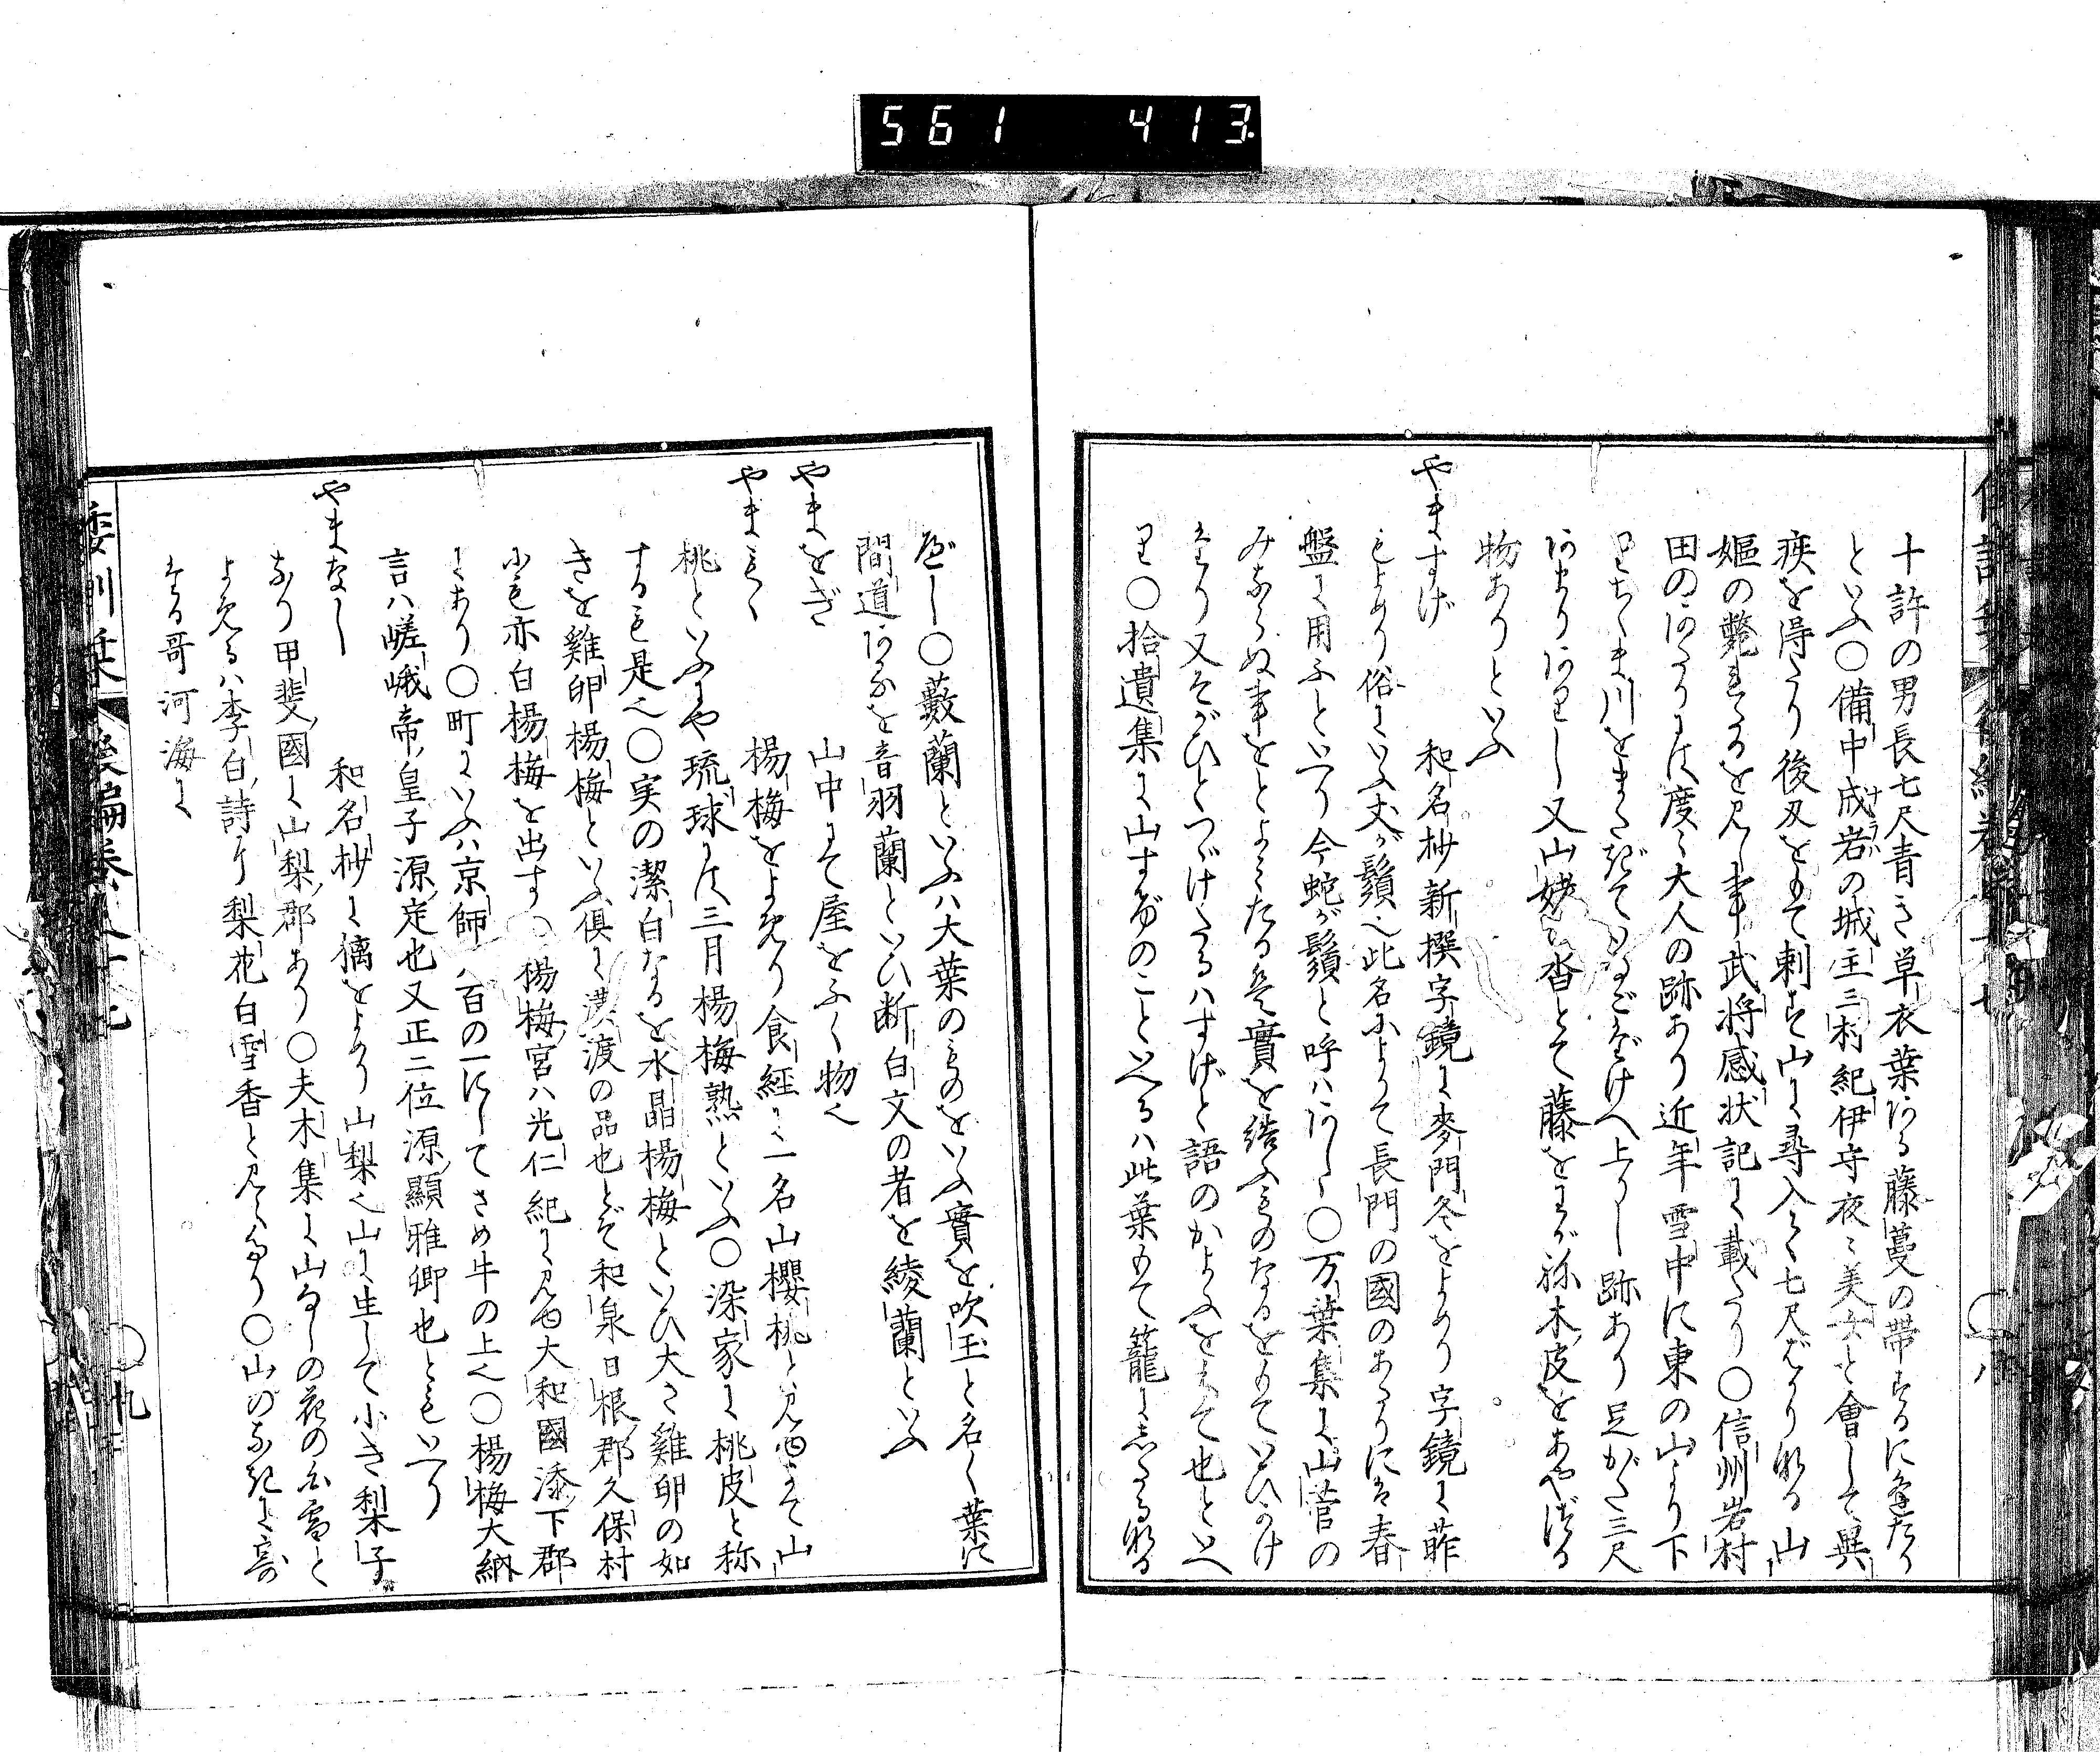 561 413
十許の男長七尺青き草衣葉ある藤蔓の帯するに逢たり
といふ〇備中成岩の城主三村紀伊守夜々美女と會して異
疾を得たり後刃をもて刺す山に尋入て七尺ばかりなる山
嫗の斃れたるを見し事武将感状記に載たり〇信州岩村
田のあたりには度々大人の跡あり近年雪中に東の山より下
りちくま川をまたぎて
上りし跡あり足がた三尺
あまりありし又山姥が沓とて藤をまげ
木皮をあや
物ありといふ
やますげ 和名抄新撰字鏡に麥門冬をよめり字鏡に
もよめり俗にいふ丈が鬚也此名によりて長門の國のあたりには春
盤に用ふといへり今蛇が鬚と呼ハあし〇万葉集に山菅の
みならぬ事をとよみたるは實を結ふものなるをもていひかけ
たり又そがひとつづけたるハすげと語のかよふをもて也といへ
り〇拾遺集に山すげのことといへるハ此葉もて籠にしたる
べし〇藪蘭といふハ大葉のものをいふ實を吹玉と名く葉に
間道あるを音羽蘭といひ断白文の者を綾蘭といふ
やまをぎ 山中にて屋をふく物也
やまもゝ 楊梅をよめり食經に一名山櫻桃と見ゆさて山
桃といふにや琉球には三月楊梅熟といふ〇染家に桃皮と称
するも是也〇実の潔白なるを水晶楊梅といひ大さ雞卵の如
きを雞卵楊梅といふ倶に漢渡の品也とぞ和泉日根郡久保村
にも亦白楊梅を出す〇楊梅宮ハ光仁紀に見ゆ大和國添下郡
にあり〇町にいふハ京師八百の一にしてさめ牛の上也〇楊梅大納
言ハ嵯峨帝ノ皇子源ノ定也又正二位源ノ顯雅卿也ともいへり
やまなし 和名抄に檎をよめり山梨也山に生して小き梨子
なり甲斐ノ國に山梨ノ郡あり〇夫木集に山なしの花の白雪と
よめるハ李白ノ詩に梨花白雪香と見えたり〇山のなきに寄
たる哥河海に
倭訓栞 後編巻之十七 九